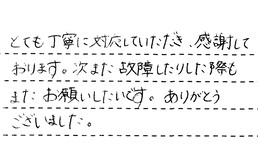 とても丁寧に対応していただき、感謝して
おります。次また故障したりした際も
またお願いしたいです。ありがとう
ございました。